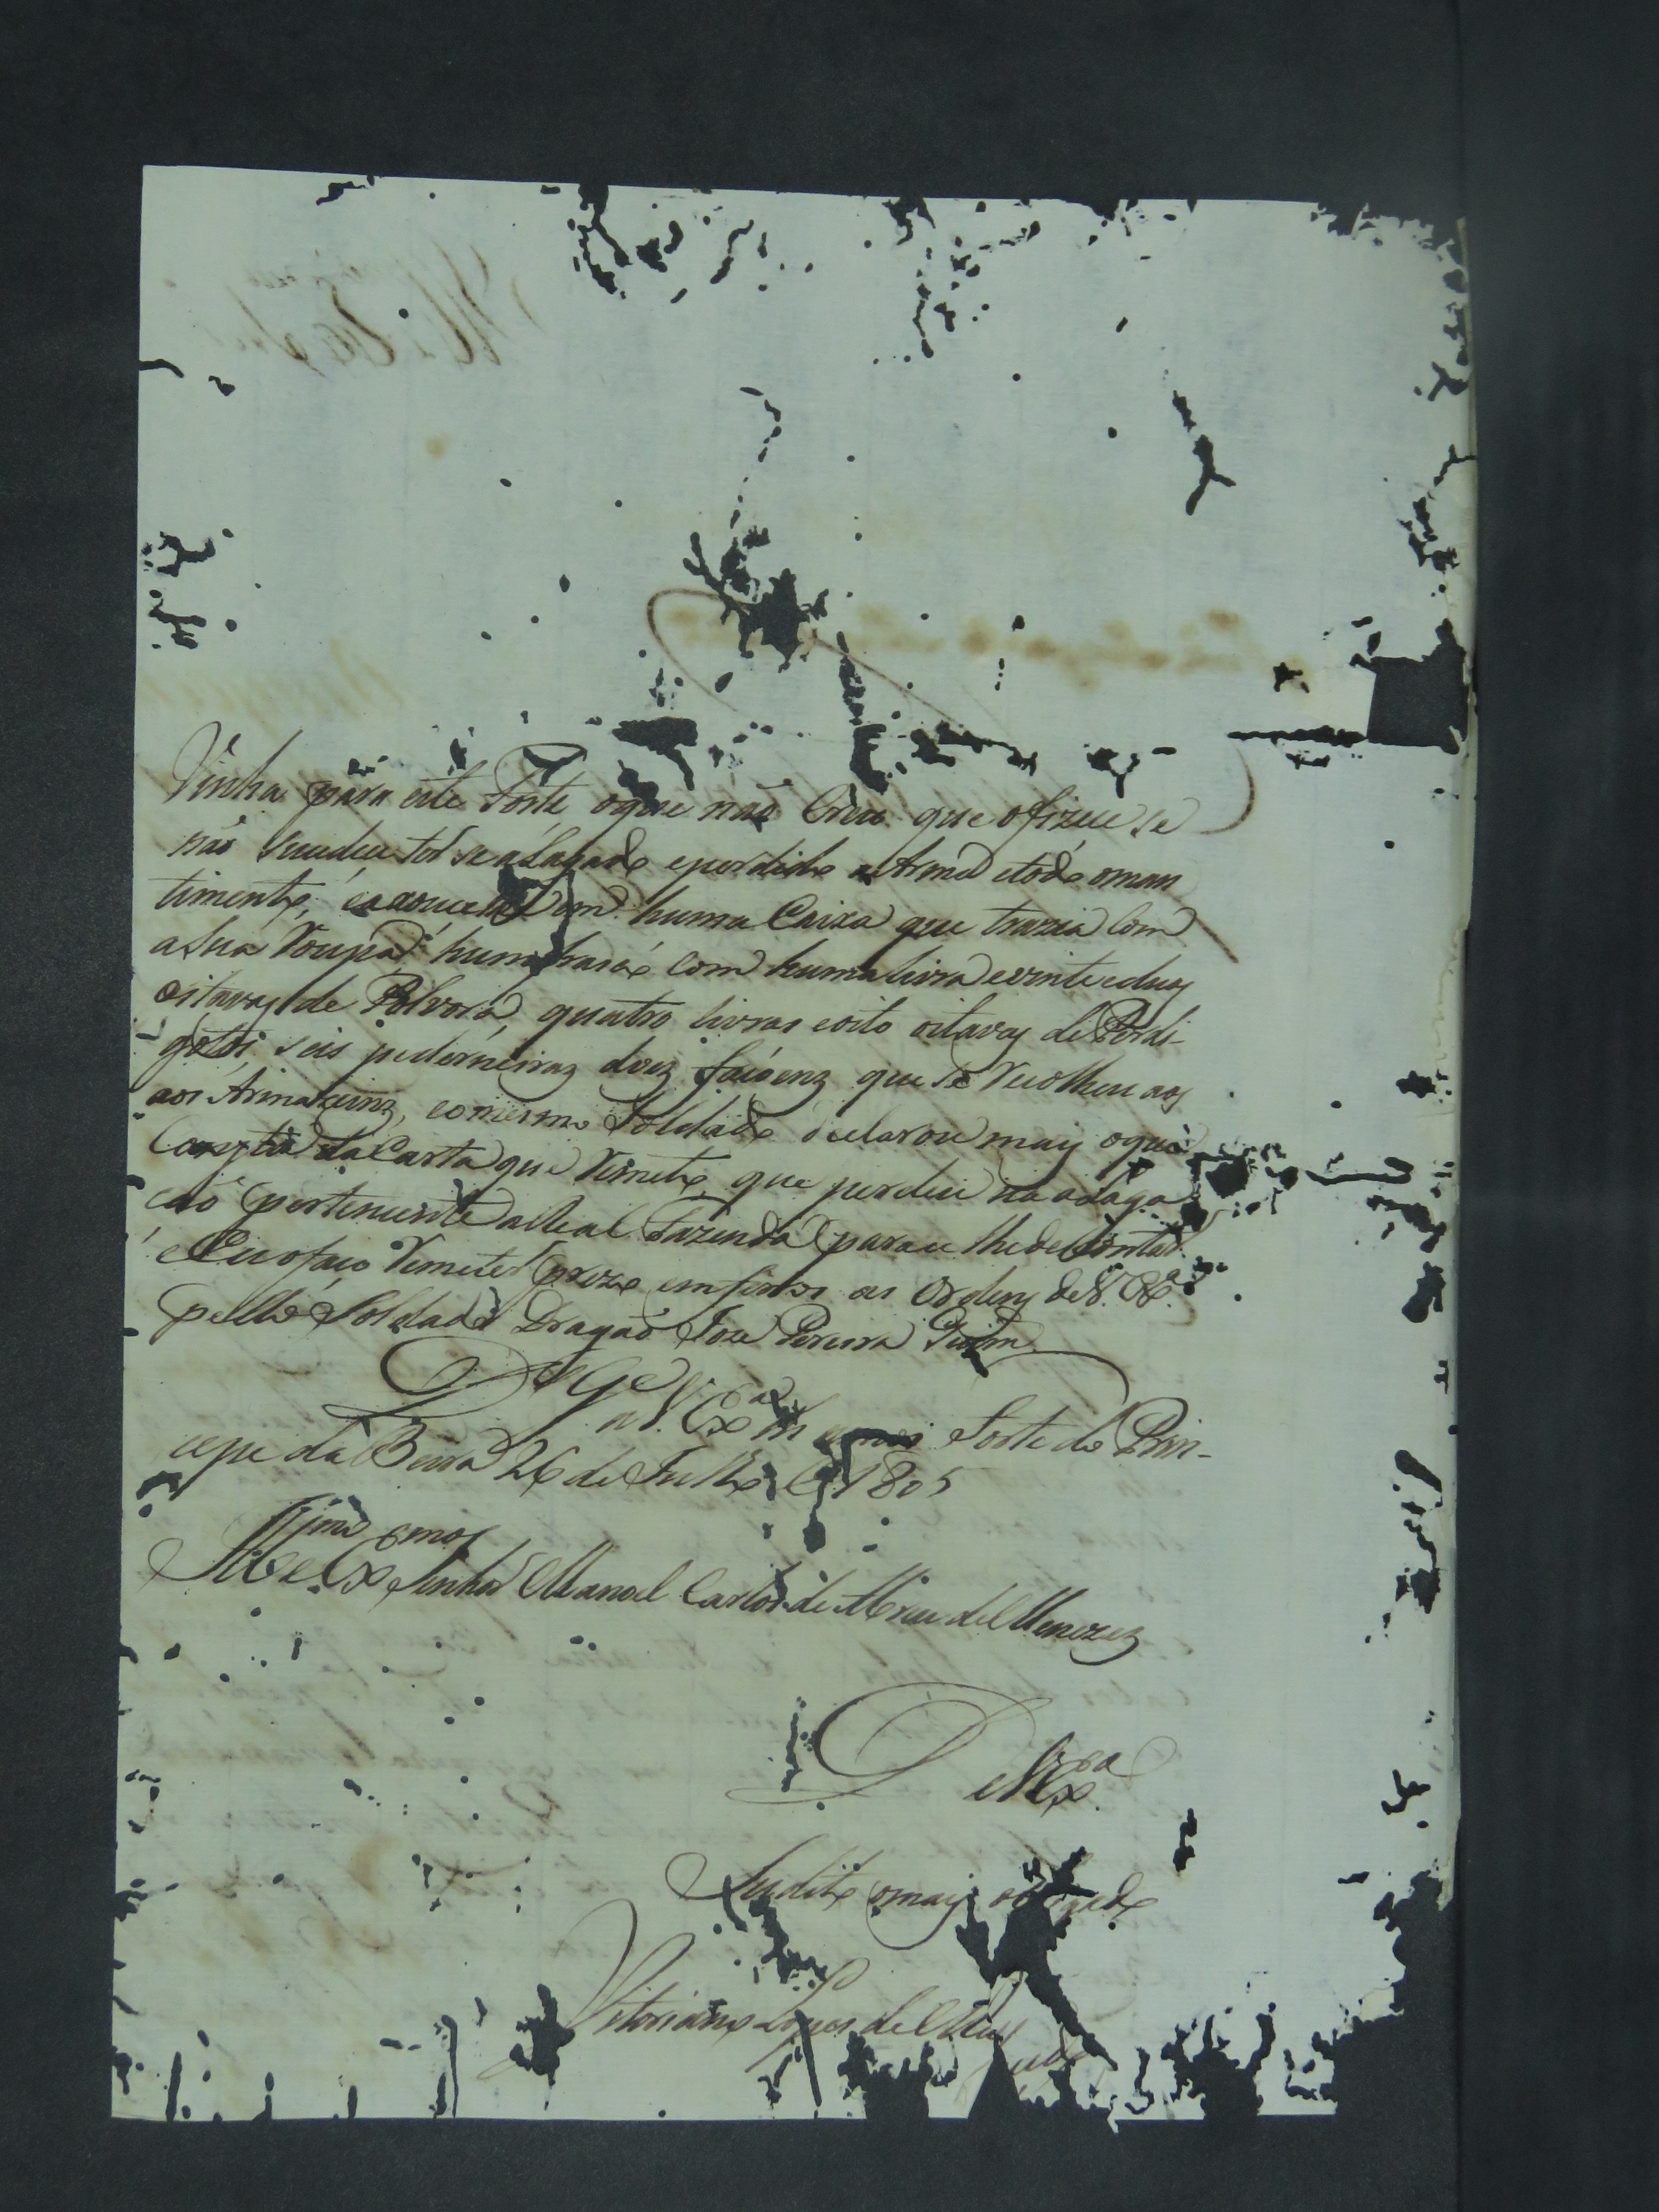 Vinha para este Forte oque não Creu que ofizece se
não Sucedece ter se alagado eperdido a Arma etodo oman
timento, em huma Caixa que trazia Com
aSua Roupa hum frasco com humalivra evinteeduas
oitavas de Polvora, quatro livras eoito oitavas de Perdi-
gotos, seis pederneiras doiz facoenz que se Recolheu aos
aos Armazeinz, eomesmo Soldado declarou mais oque
Consta da Carta que Remeto, que perdeu na alaga
caó pertencente aReal Fazenda para se lhedescontar.
eEu ofaço Remeter prezo emferros as Ordens deV. Exª
pello Soldado Dragaó Joze Pereira
Ds Ge
a V. Exª ms annos Forte do Prin-
cipe da Beira 26 de Julho de 1805
Illmo e Exmo Senhor Manoel Carlos de Abreu deMenezez
DeV. Exª
Subdito omais obrigado
Vitoriano Lopes deMa
cedo